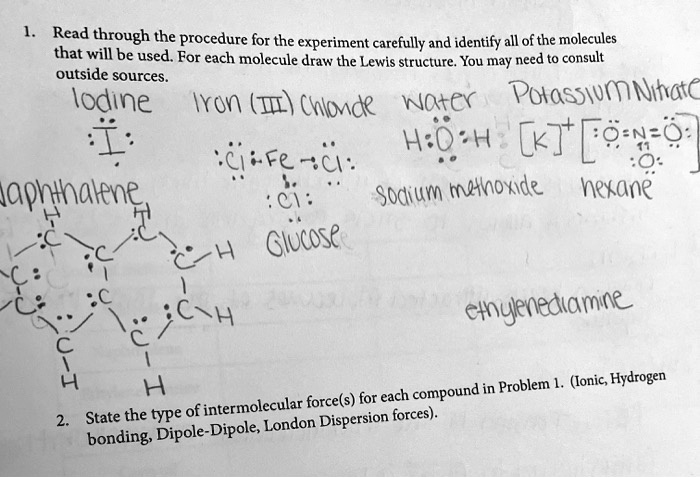 1. Read through the procedure for the experiment carefully and identify all of the molecules
that will be used. For each molecule draw the Lewis structure. You may need to consult
outside sources.
Iodine Iron (III) Chloride water Potassium Nitrate
:I:
:Cl Fe Cl:
:Cl:
H:O:H [K]+ [:O=N=O:]
:O:
Naphthalene
sodium methoxide hexane
Glucose
H H
C C
C C-H
C:
C :C C H
C C
H H
ethylenediamine
2. State the type of intermolecular force(s) for each compound in Problem 1. (Ionic, Hydrogen
bonding, Dipole-Dipole, London Dispersion forces).